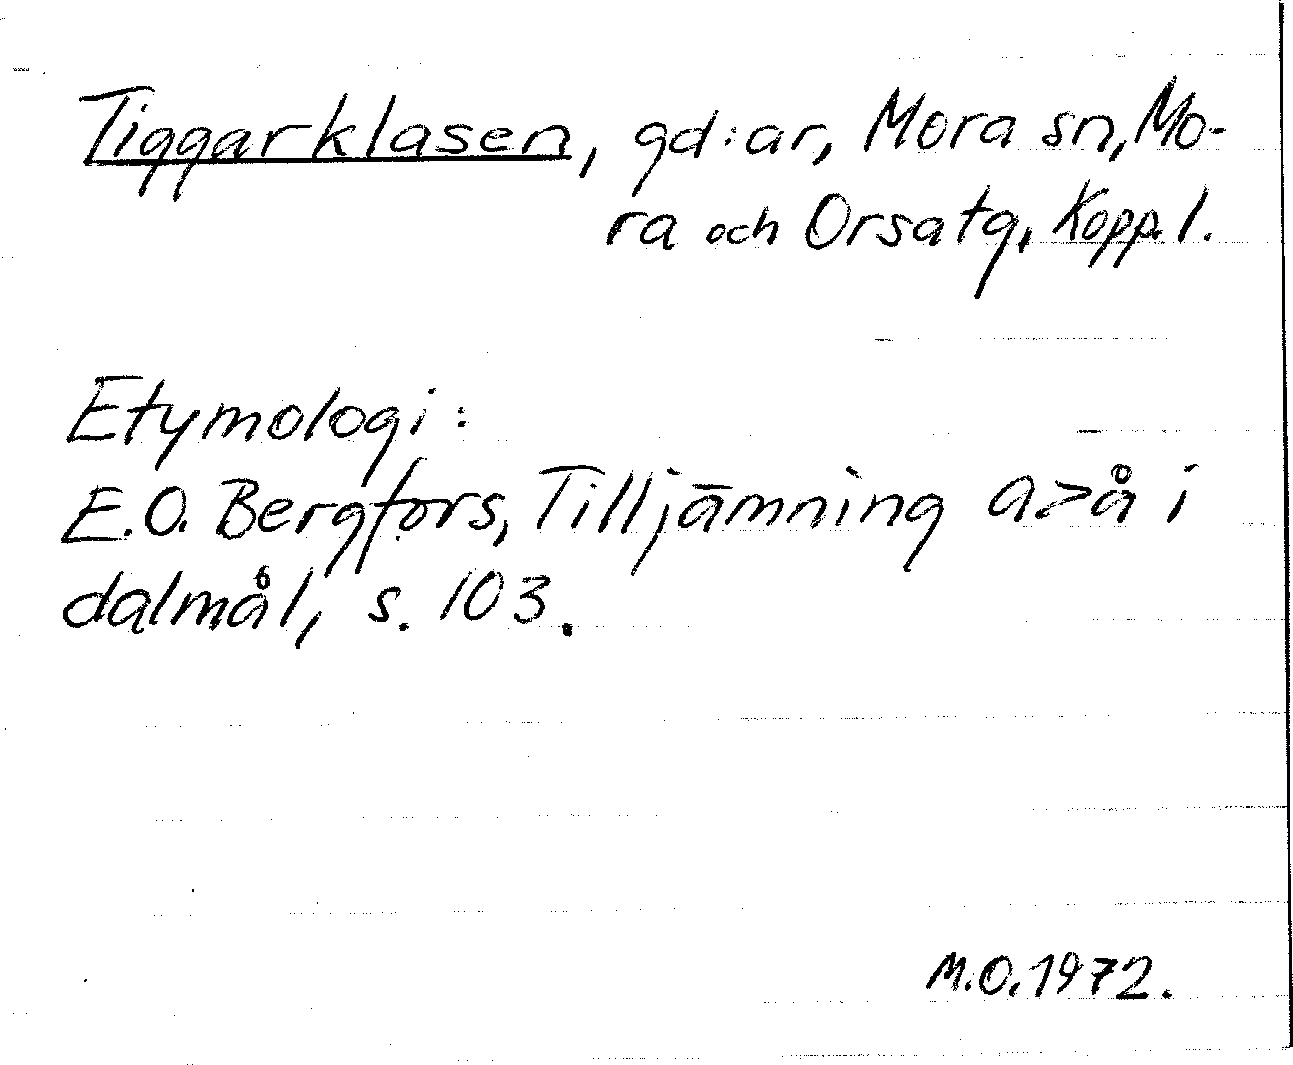 Tiggarklasen, gd:ar, Mora sn, Mo-
ra och Orsa tg, Kopp. l.
Etymologi:
E.O. Bergfors, Tilljämning a>å i
dalmål, s. 103.
M.O. 1972.